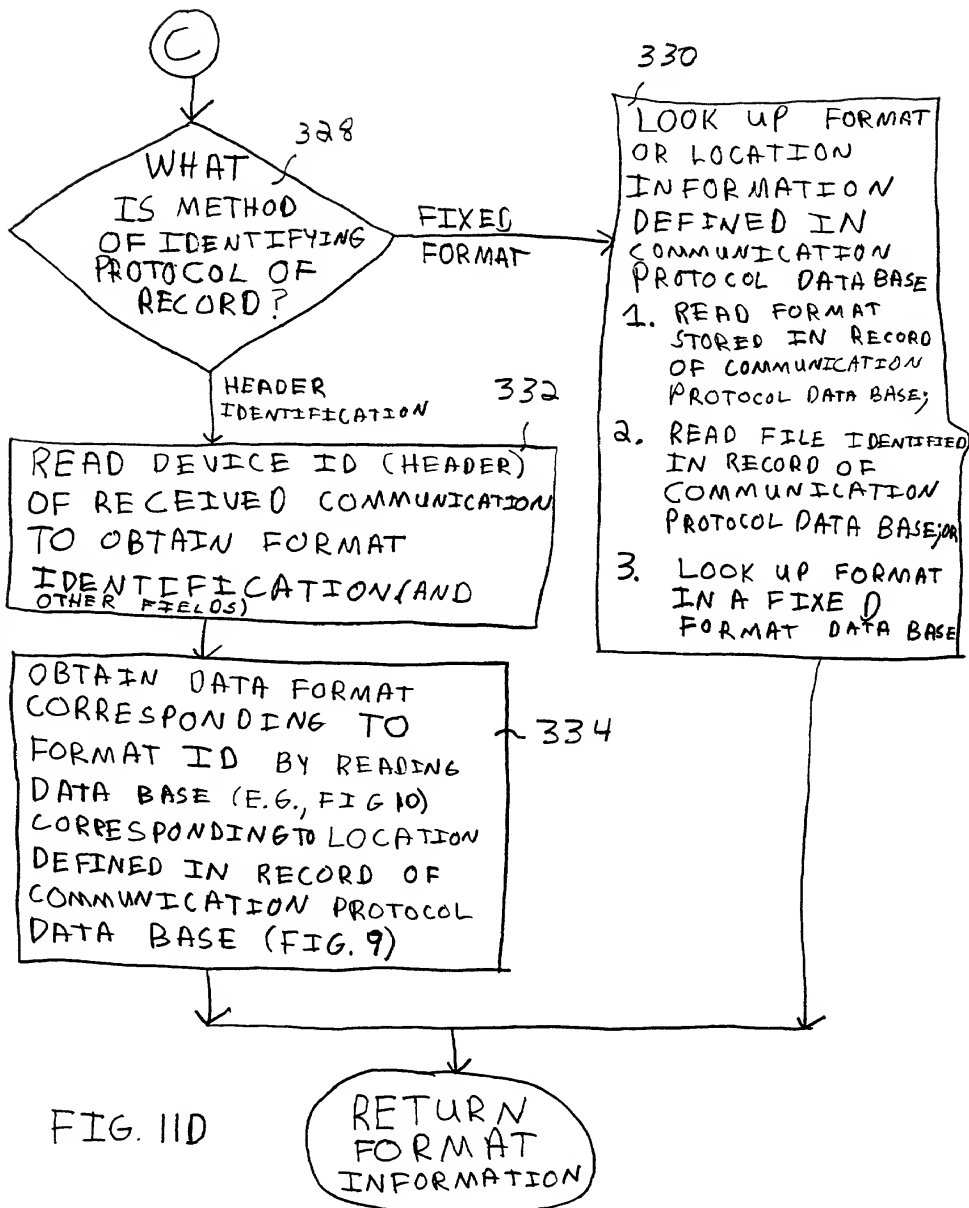 C
328
WHAT
IS METHOD
OF IDENTIFYING
PROTOCOL OF
RECORD?
FIXED
FORMAT
330
LOOK UP FORMAT
OR LOCATION
INFORMATION
DEFINED IN
COMMUNICATION
PROTOCOL DATA BASE
1. READ FORMAT
STORED IN RECORD
OF COMMUNICATION
PROTOCOL DATA BASE;
2. READ FILE IDENTIFIED
IN RECORD OF
COMMUNICATION
PROTOCOL DATA BASE; OR
3. LOOK UP FORMAT
IN A FIXED
FORMAT DATA BASE
HEADER
IDENTIFICATION
332
READ DEVICE ID (HEADER)
OF RECEIVED COMMUNICATION
TO OBTAIN FORMAT
IDENTIFICATION (AND
OTHER FIELDS)
OBTAIN DATA FORMAT
CORRESPONDING TO
FORMAT ID BY READING
DATA BASE (E.G., FIG 10)
CORRESPONDING TO LOCATION
DEFINED IN RECORD OF
COMMUNICATION PROTOCOL
DATA BASE (FIG. 9)
334
FIG. 11D
RETURN
FORMAT
INFORMATION